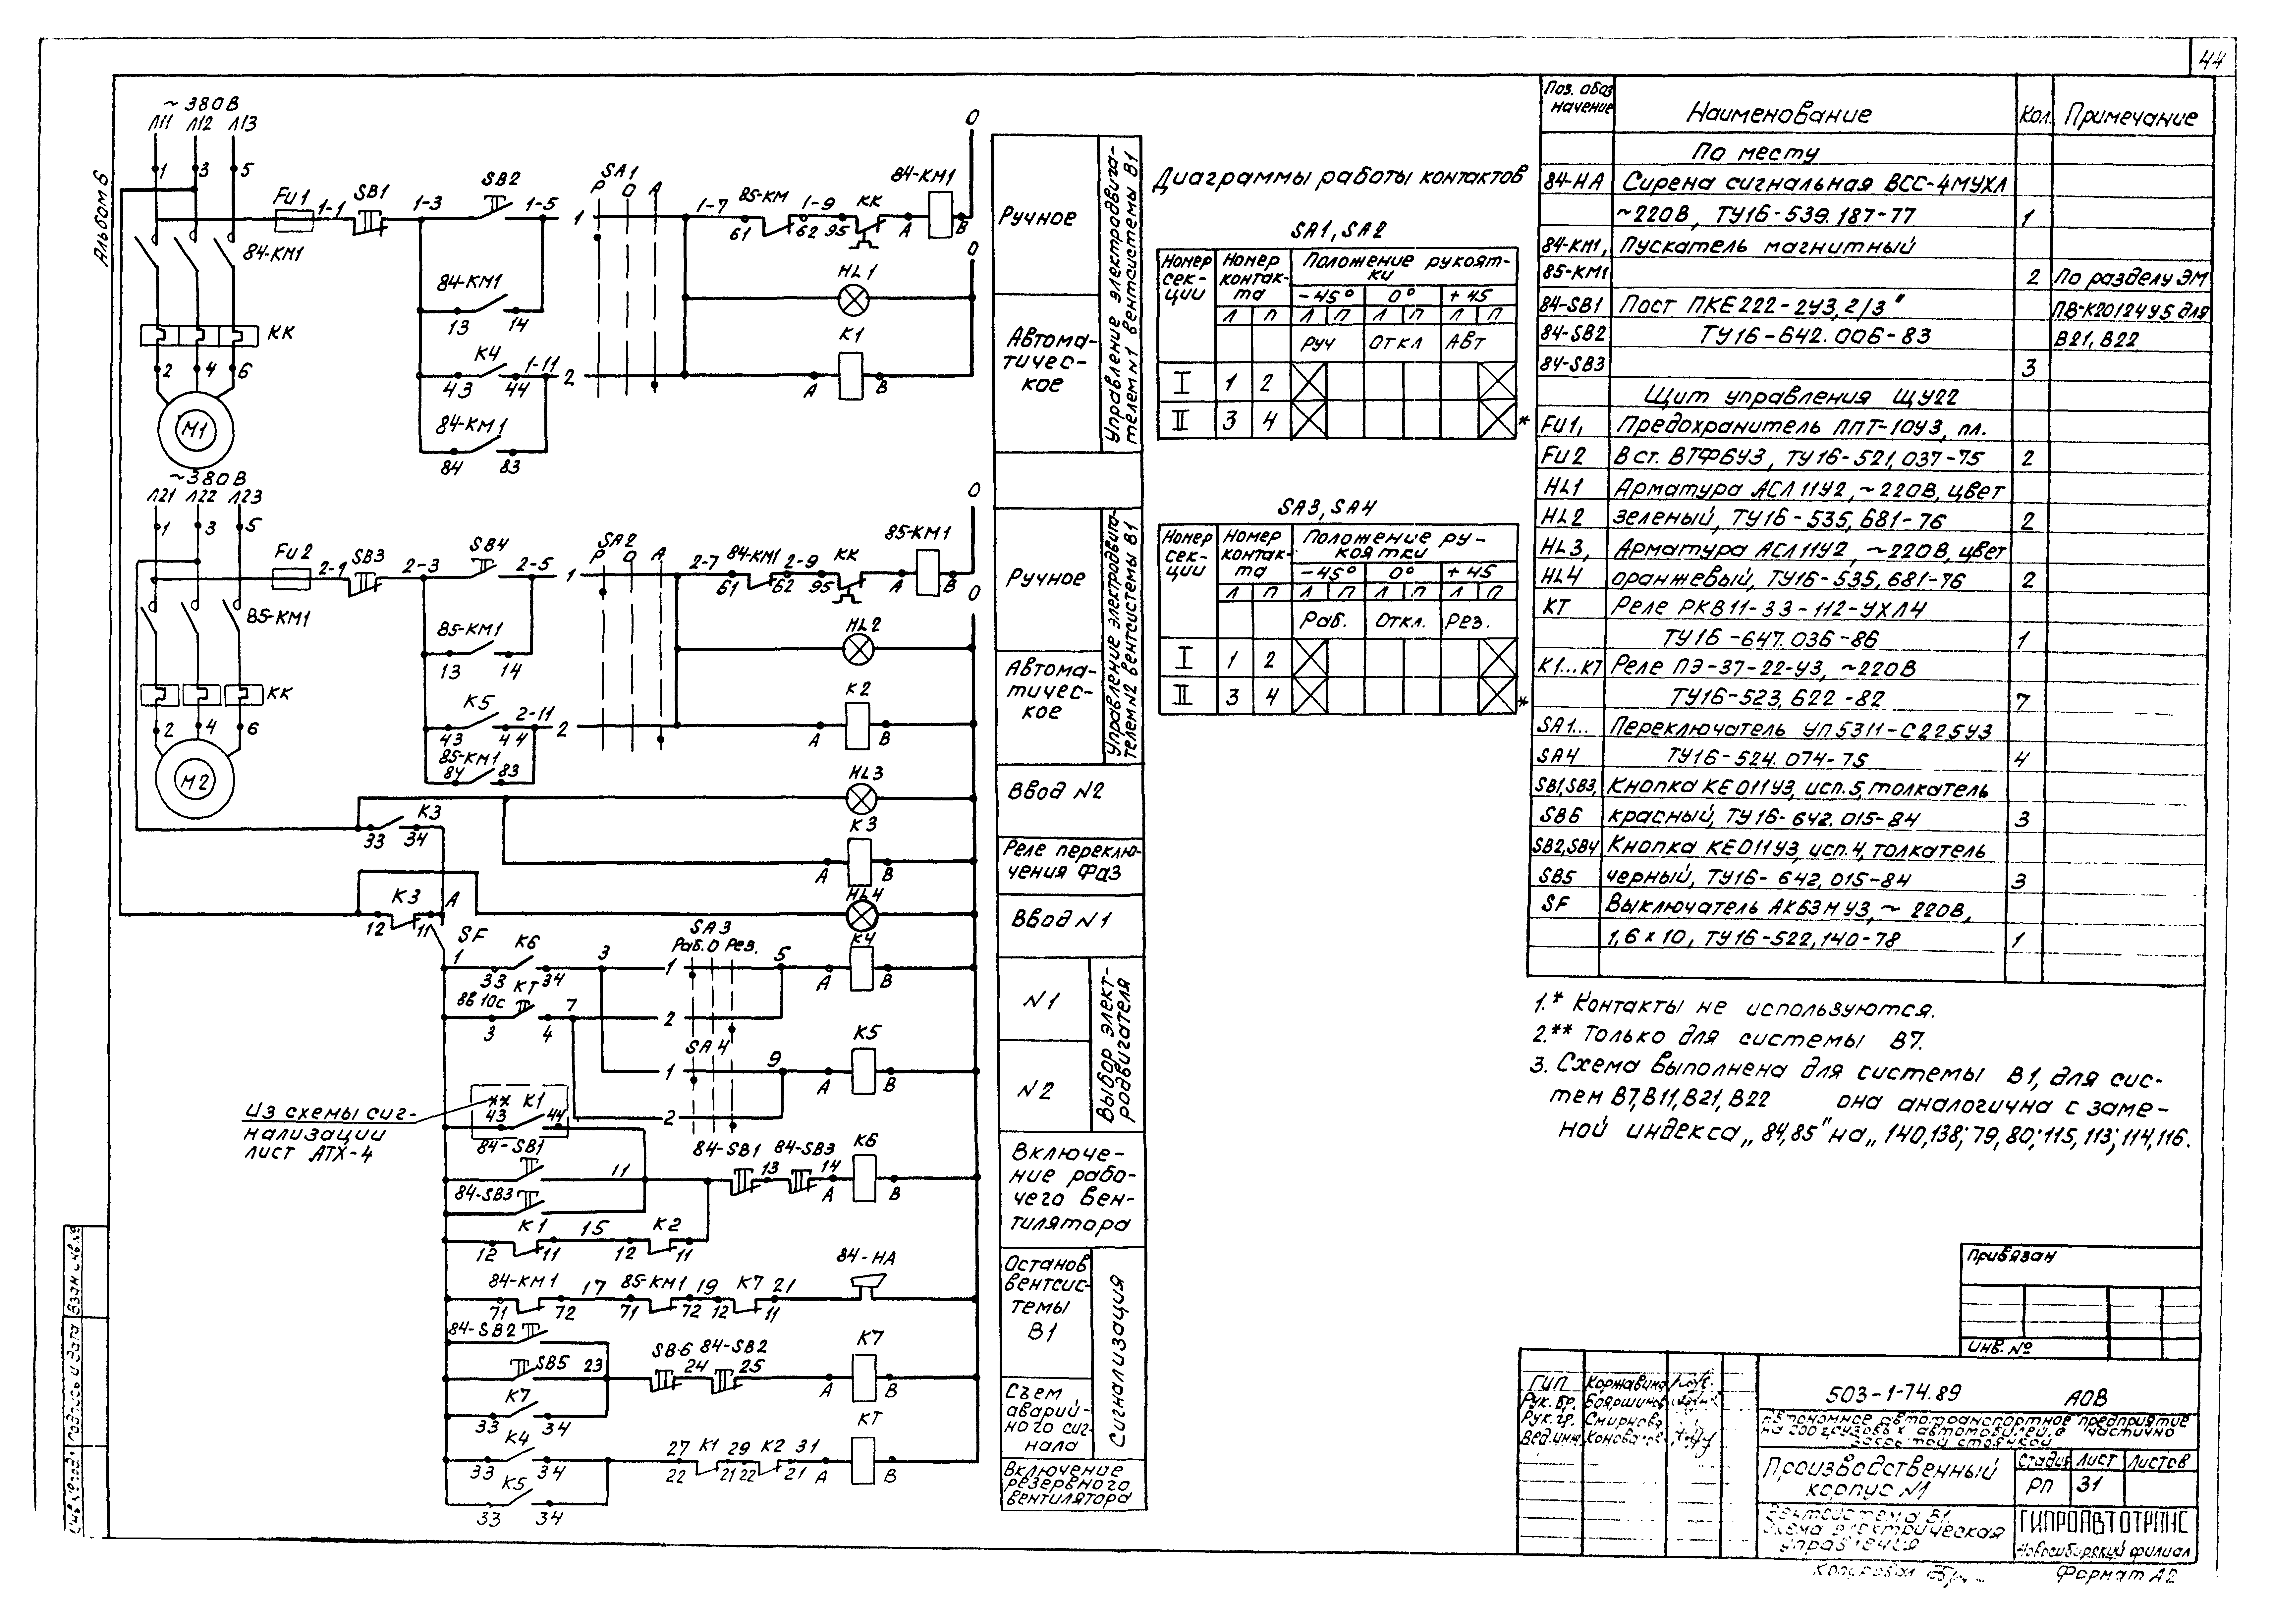 44
Альбом 6
~380В
Л11 Л12 Л13
1 3 5
FU1 1-1 SB1 1-3 SB2 1-5 1
SA1
Р О А
1-7 85-КМ 1-9 КК 84-КМ1 0
61 62 95 А В
84-КМ1
84-КМ1
13 14
HL1
0
КК
К4 1-11 2
43 44
К1
А В
2 4 6
84-КМ1
84 83
М1
~380В
Л21 Л22 Л23
1 3 5
FU2 2-1 SB3 2-3 SB4 2-5 1
SA2
Р О А
2-7 84-КМ1 2-9 КК 85-КМ1 0
61 62 95 А В
85-КМ1
85-КМ1
13 14
HL2
0
КК
К5 2-11 2
43 44
К2
А В
2 4 6
85-КМ1
84 83
М2
HL3
К3
33 34
К3
А В
К3 А
12 11
HL4
SF
1 К6 3
33 34
SA3
Раб. О Рез.
1 5
К4
А В
8в 10с КТ 7
3 4
2
SA4
1 9
К5
А В
2
** К1
43 44
Из схемы сиг-
нализации
лист АТХ-4
84-SB1
11
84-SB3
84-SB1 13 84-SB3 14
К6
А В
К1 15 К2
12 11 12 11
84-КМ1 17 85-КМ1 19 К7 21
71 72 71 72 12 11
84-НА
84-SB2
SB5 23
SB6 24 84-SB2 25
К7
А В
К7
33 34
К4
33 34
27 К1 29 К2 31
22 21 22 21
КТ
А В
К5
33 34
Ручное
Автома-
тичес-
кое
Управление электродвига-
телем N1 вентсистемы В1
Ручное
Автома-
тичес-
кое
Управление электродвига-
телем N2 вентсистемы В1
Ввод N2
Реле переклю-
чения фаз
Ввод N1
N1
N2
Выбор элект-
родвигателя
Включе-
ние рабо-
чего вен-
тилятора
Останов
вентсис-
темы
В1
Съем
аварий-
ного сиг-
нала
Сигнализация
Включение
резервного
вентилятора
Диаграммы работы контактов
SA1, SA2
Номер сек-ции Номер контак-та Положение рукоят-ки
-45° 0° +45
Л П Л П Л П Л П
Руч Откл Авт
I 1 2
II 3 4 *
SA3, SA4
Номер сек-ции Номер контак-та Положение ру-коятки
-45° 0° +45
Л П Л П Л П Л П
Раб. Откл. Рез.
I 1 2
II 3 4 *
Поз. обоз
начение Наименование Кол. Примечание
По месту
84-НА Сирена сигнальная ВСС-4МУХЛ
~220В, ТУ16-539.187-77 1
84-КМ1, Пускатель магнитный
85-КМ1 2 По разделу ЭМ
84-SB1 Пост ПКЕ222-2У3, 2/3" ПВ-К20124У5 для
84-SB2 ТУ16-642.006-83 В21, В22
84-SB3 3
Щит управления ЩУ22
FU1, Предохранитель ППТ-10У3, пл.
FU2 Вст. ВТФ6У3, ТУ16-521,037-75 2
HL1 Арматура АСЛ11У2, ~220В, цвет
HL2 зеленый, ТУ16-535,681-76 2
HL3, Арматура АСЛ11У2, ~220В, цвет
HL4 оранжевый, ТУ16-535,681-76 2
КТ Реле РКВ11-33-112-УХЛ4
ТУ16-647.036-86 1
К1...К7 Реле ПЭ-37-22-У3, ~220В
ТУ16-523,622-82 7
SA1... Переключатель УП5311-С225У3
SA4 ТУ16-524.074-75 4
SB1,SB3, Кнопка КЕ011У3, исп.5, толкатель
SB6 красный, ТУ16-642.015-84 3
SB2,SB4 Кнопка КЕ011У3, исп.4, толкатель
SB5 черный, ТУ16-642,015-84 3
SF Выключатель АК63МУ3, ~220В,
1,6×10, ТУ16-522,140-78 1
1.* Контакты не используются.
2.** Только для системы В7.
3. Схема выполнена для системы В1, для сис-
тем В7,В11,В21,В22 она аналогична с заме-
ной индекса „84,85" на „140,138; 79,80; 115,113; 114,116.
Привязан
Инв. №
ГИП Коржавина
Рук. бр. Бояршинов
Рук. гр. Смирнова
Вед.инж
503-1-74.89 АОВ
Автономное автотранспортное предприятие
на 200 грузовых автомобилей, с частично
закрытой стоянкой
Производственный
корпус N1
Стадия Лист Листов
РП 31
Вентсистема В1.
Схема электрическая
управления
ГИПРОАВТОТРАНС
Новосибирский филиал
Взам инв.№
Подпись и дата
Инв.№подл
Копировал
Формат А2